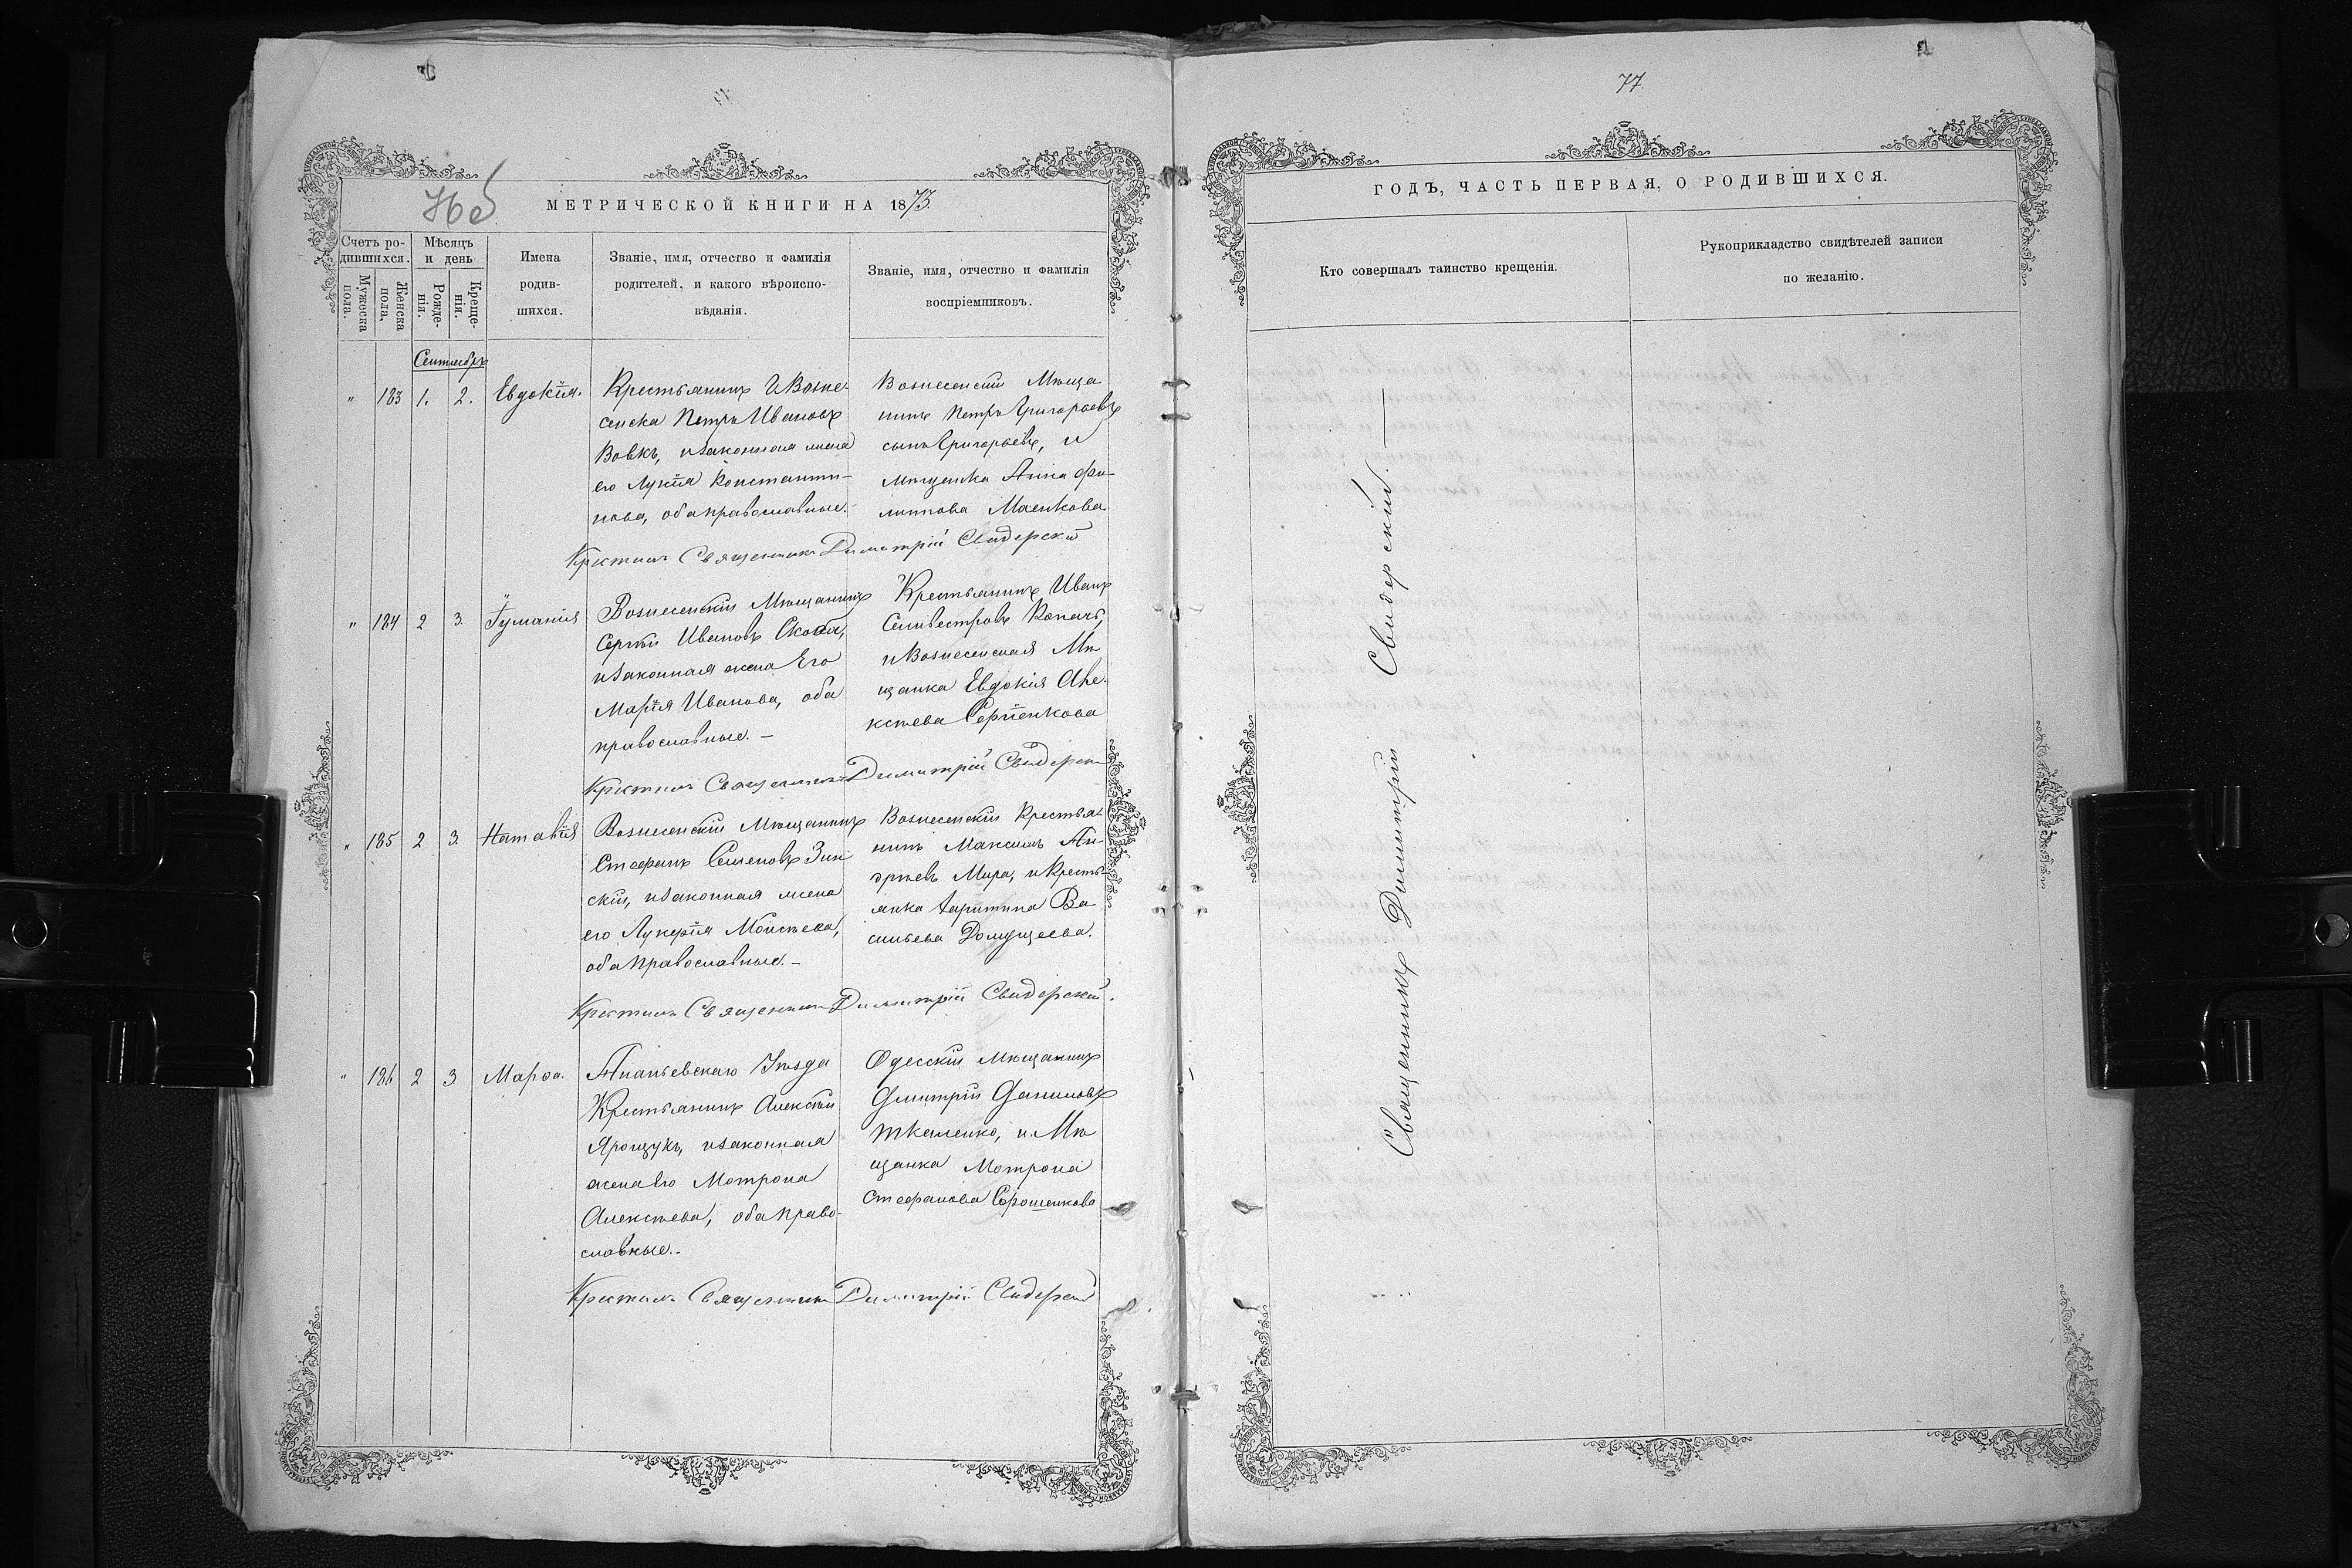 76 об
МЕТРИЧЕСКОЙ КНИГИ НА 1873
Счетъ ро-
дившихся.
Мужеска
пола.
Женска
пола.
Мѣсяцъ
и день
Рожде-
нія.
Креще-
нія.
Имена
родив-
шихся.
Званіе, имя, отчество и фамилія
родителей, и какого вѣроиспо-
вѣданія.
Званіе, имя, отчество и фамилія
воспріемниковъ.
Сентябрь
" 183 1. 2. Евдокія.
Крестьянинъ г. Возне-
сенска Петръ Ивановъ
Вовкъ, и законная жена
его Лукія Константи-
нова, оба православные.
Вознесенскій Мѣща
нинъ Петръ Григорьевъ
сынъ Григорьевъ, и
мѣщанка Анна Фи-
липпова Маенкова
Крестилъ Священникъ Димитрій Свидерскій
" 184 2 3.
Вознесенскій Мѣщанинъ
Сергѣй Ивановъ Скоба,
и законная жена Его
Марія Иванова, оба
православные. -
Крестьянинъ Иванъ
Селивестровъ Копачъ,
и Вознесенская Мѣ
щанка Евдокія Але-
ксѣева Сергіенкова
Крестилъ Священникъ Димитрій Свидерскій
" 185 2 3. Наталія
Вознесенскій Мѣщанинъ
Стефанъ Семеновъ Зин
скій, и законная жена
его Лукерія Моисѣева,
оба православные. -
Вознесенскій Крестья
нинъ Максимъ Ан-
дреевъ Мира, и Кресть-
янка Харитина Ва
сильева Домущеева.
Крестилъ Священникъ Димитрій Свидерскій.
" 186 2 3 Марѳа.
Ананьевскаго Уѣзда
Крестьянинъ Алексѣй
Ярощукъ, и законная
жена его Мотрона
Алексѣева, оба право-
славные. -
Одесскій мѣщанинъ
Дмитрій Даниловъ
Ткаленко, и Мѣ
щанка Мотрона
Стефанова Сорошенкова
Крестилъ Священникъ Димитрій Свидерскій
77.
ГОДЪ, ЧАСТЬ ПЕРВАЯ, О РОДИВШИХСЯ.
Кто совершалъ таинство крещенія.
Рукоприкладство свидѣтелей записи
по желанію.
Священникъ Димитрій Свидерскій. —